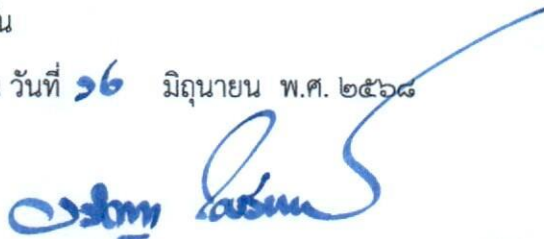 น
วันที่ ๑๖ มิถุนายน พ.ศ. ๒๕๖๘